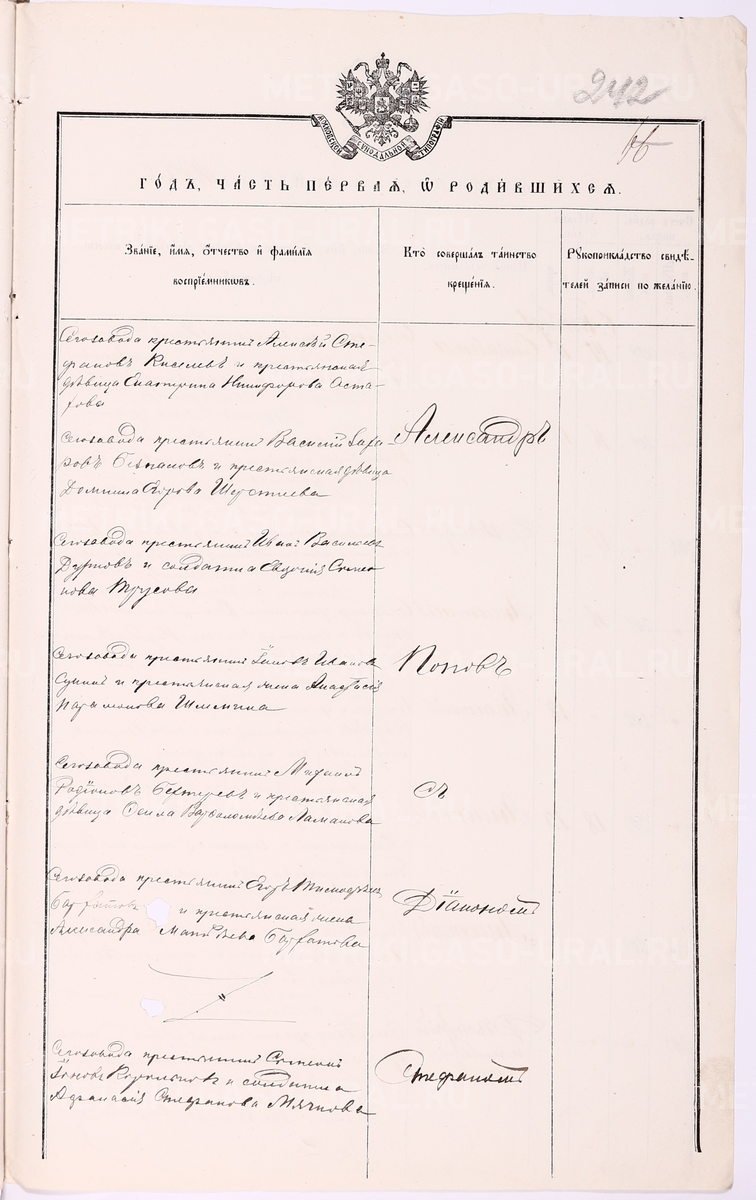 242
МОСКОВСКОЙ СУНОДАЛЬНОЙ ТИПОГРАФІИ
ГО́ДЪ, ЧА́СТЬ ПЕ́РВАЯ, Ѡ҆ РОДИ́ВШИХСЯ.
Зва́нїе, и҆́мя, ѻ҆́тчество и҆ фами́лїя
воспрїе́мниковъ.
Кто̀ соверша́лъ та́инство
креще́нїя.
Рꙋкоприкла́дство свидѣ́-
телей за́писи по жела́нїю.
Сегозавода крестьянинъ Алексѣй Сте-
фановъ Киселевъ и крестьянская
дѣвица Екатерина Никифорова Оста-
Сегозавода крестьянинъ Василій
и крестьянская дѣвица
Домника Егорова
Александръ
Сегозавода крестьянинъ Иванъ Васильевъ
Дурновъ и солдатка Евдокія Симео-
нова Трусова
Сегозавода крестьянинъ Іаковъ Ивановъ
и крестьянская жена Анастасія
Парамонова
Поповъ
Сегозавода крестьянинъ Михаилъ
Родіоновъ Бехтеревъ и крестьянская
дѣвица Ѳекла Варѳоломѣева Ламанова
съ
Сегозавода крестьянинъ Егоръ Тимоѳѣевъ
и крестьянская жена
Александра Матвѣева
Діакономъ
Сегозавода крестьянинъ Симеонъ
и солдатка
Аѳанасія Стефанова Мячкова
Стефаномъ